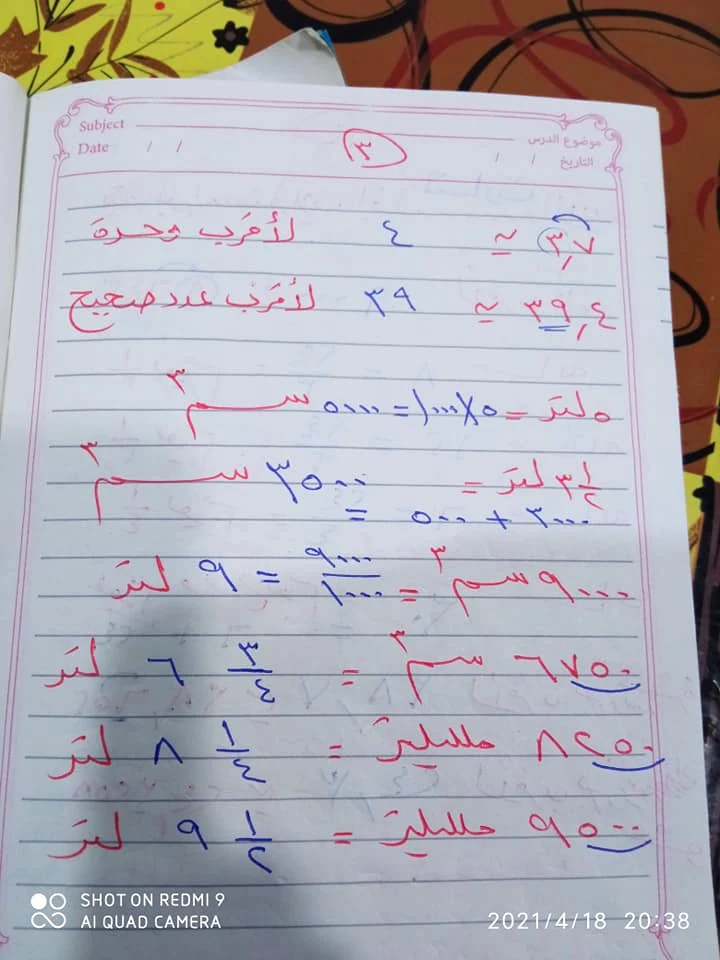 Subject موضوع الدرس
Date / / التاريخ / /
٣
٣,٧ ≃ ٤ لأقرب وحدة
٣٩,٤ ≃ ٣٩ لأقرب عدد صحيح
٥ لتر = ٥ × ١٠٠٠ = ٥٠٠٠ سم ٣
٣ ١/٢ لتر = ٣٥٠٠ سم ٣
= ٣٠٠٠ + ٥٠٠
٩٠٠٠ سم ٣ = ٩٠٠٠/١٠٠٠ = ٩ لتر
٦٧٥٠ سم ٣ = ٦ ٣/٤ لتر
٨٢٥٠ ملليلتر = ٨ ١/٤ لتر
٩٥٠٠ ملليلتر = ٩ ١/٢ لتر
SHOT ON REDMI 9
AI QUAD CAMERA
2021/4/18 20:38